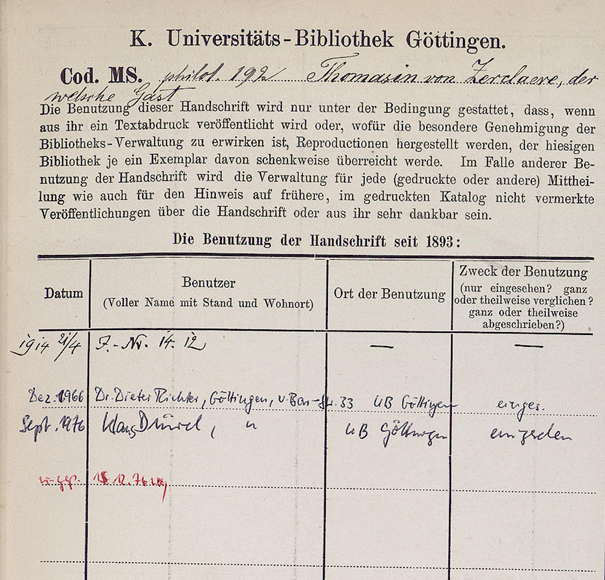 K. Universitäts-Bibliothek Göttingen.
Cod. MS. philol. 192 Thomasin von Zerclaere, der
welsche Gast
Die Benutzung dieser Handschrift wird nur unter der Bedingung gestattet, dass, wenn
aus ihr ein Textabdruck veröffentlicht wird oder, wofür die besondere Genehmigung der
Bibliotheks-Verwaltung zu erwirken ist, Reproductionen hergestellt werden, der hiesigen
Bibliothek je ein Exemplar davon schenkweise überreicht werde. Im Falle anderer Be-
nutzung der Handschrift wird die Verwaltung für jede (gedruckte oder andere) Mitthei-
lung wie auch für den Hinweis auf frühere, im gedruckten Katalog nicht vermerkte
Veröffentlichungen über die Handschrift oder aus ihr sehr dankbar sein.
Die Benutzung der Handschrift seit 1893:
Datum
Benutzer
(Voller Name mit Stand und Wohnort)
Ort der Benutzung
Zweck der Benutzung
(nur eingesehen? ganz
oder theilweise verglichen?
ganz oder theilweise
abgeschrieben?)
1914 21/4 J.-Nr. 14. 12 — —
Dez. 1966 Dr. Dieter Richter, Göttingen, 33 UB Göttingen einges.
Sept. 1976 Klaus UB Göttingen eingesehen
12. 76